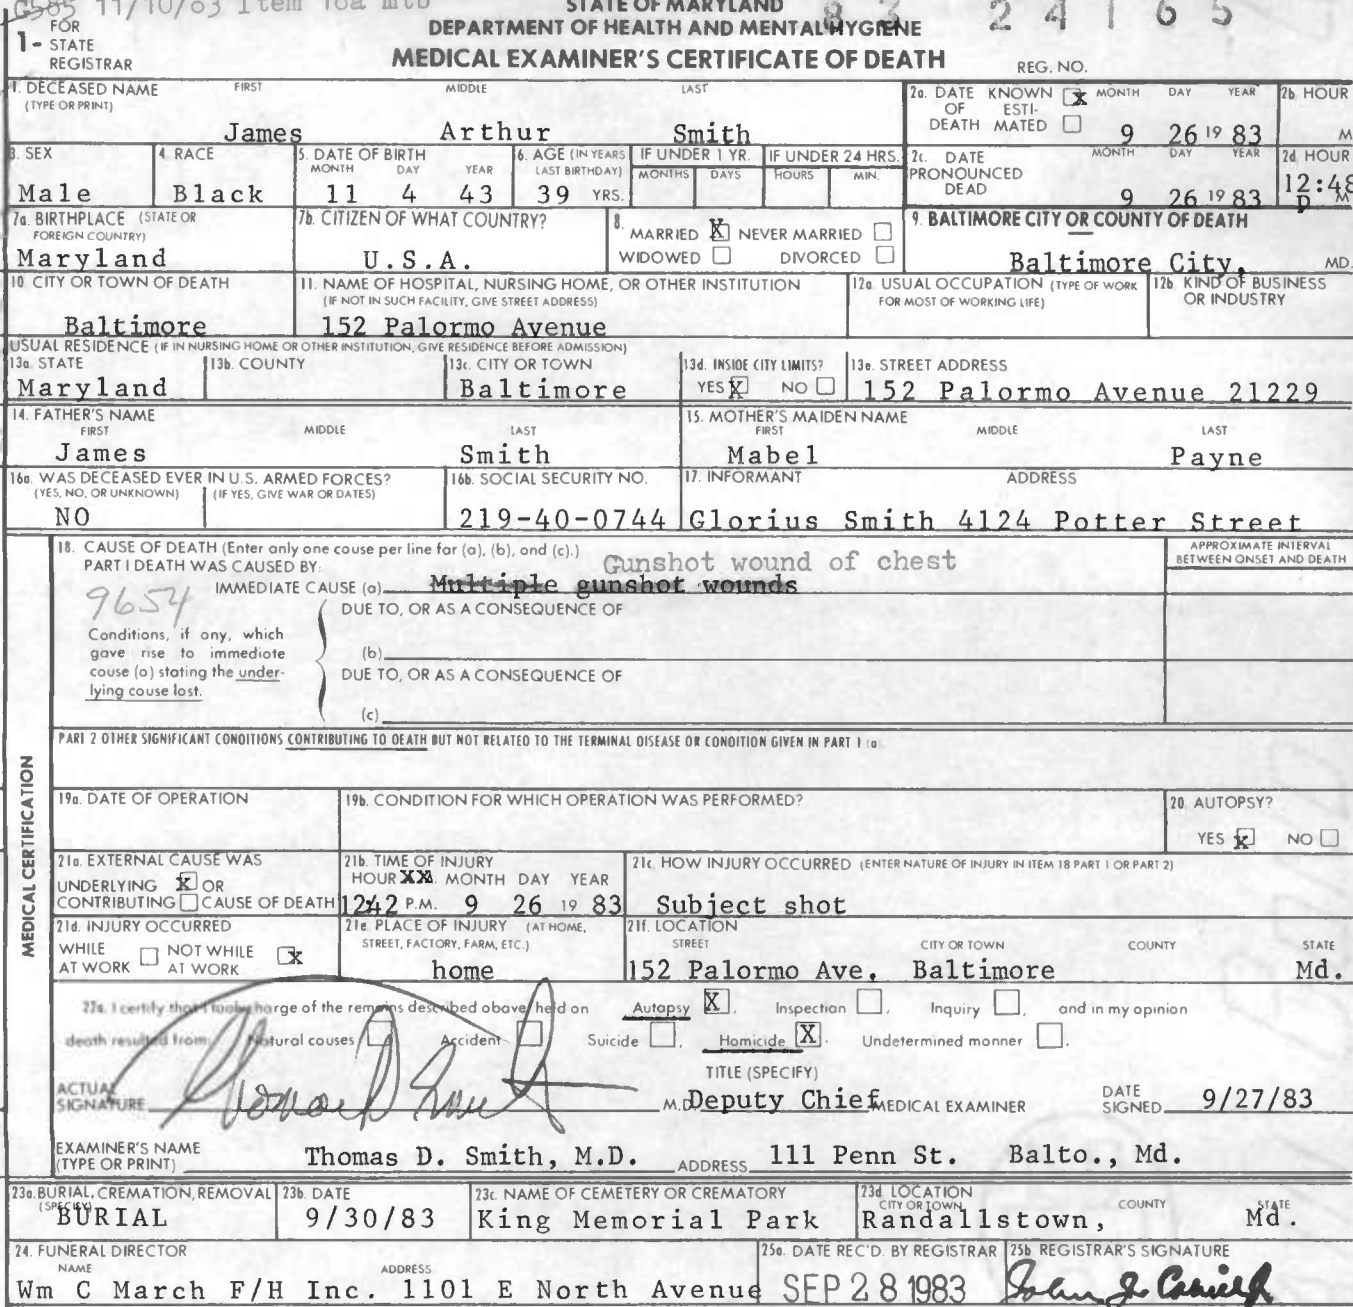 C585 11/10/83 Item 18a mtb
STATE OF MARYLAND
83 24165
FOR
1- STATE
REGISTRAR
DEPARTMENT OF HEALTH AND MENTAL HYGIENE
MEDICAL EXAMINER'S CERTIFICATE OF DEATH
REG. NO.
1. DECEASED NAME FIRST MIDDLE LAST
(TYPE OR PRINT)
James Arthur Smith
2a. DATE KNOWN [X] MONTH DAY YEAR
OF ESTI-
DEATH MATED [ ] 9 26 19 83
2b HOUR
M
3. SEX
Male
4. RACE
Black
5. DATE OF BIRTH
MONTH DAY YEAR
11 4 43
6. AGE (IN YEARS
LAST BIRTHDAY)
39 YRS.
IF UNDER 1 YR.
MONTHS DAYS
IF UNDER 24 HRS.
HOURS MIN.
2c. DATE MONTH DAY YEAR
PRONOUNCED
DEAD 9 26 19 83
2d HOUR
12:48
p M
7a. BIRTHPLACE (STATE OR
FOREIGN COUNTRY)
Maryland
7b. CITIZEN OF WHAT COUNTRY?
U.S.A.
8. MARRIED [X] NEVER MARRIED [ ]
WIDOWED [ ] DIVORCED [ ]
9. BALTIMORE CITY OR COUNTY OF DEATH
Baltimore City, MD.
10 CITY OR TOWN OF DEATH
Baltimore
11. NAME OF HOSPITAL, NURSING HOME, OR OTHER INSTITUTION
(IF NOT IN SUCH FACILITY, GIVE STREET ADDRESS)
152 Palormo Avenue
12a. USUAL OCCUPATION (TYPE OF WORK
FOR MOST OF WORKING LIFE)
12b. KIND OF BUSINESS
OR INDUSTRY
USUAL RESIDENCE (IF IN NURSING HOME OR OTHER INSTITUTION, GIVE RESIDENCE BEFORE ADMISSION)
13a. STATE
Maryland
13b. COUNTY
13c. CITY OR TOWN
Baltimore
13d. INSIDE CITY LIMITS?
YES [X] NO [ ]
13e. STREET ADDRESS
152 Palormo Avenue 21229
14. FATHER'S NAME
FIRST MIDDLE LAST
James Smith
15. MOTHER'S MAIDEN NAME
FIRST MIDDLE LAST
Mabel Payne
16a. WAS DECEASED EVER IN U.S. ARMED FORCES?
(YES, NO, OR UNKNOWN) (IF YES, GIVE WAR OR DATES)
NO
16b. SOCIAL SECURITY NO.
219-40-0744
17. INFORMANT ADDRESS
Glorius Smith 4124 Potter Street
MEDICAL CERTIFICATION
18. CAUSE OF DEATH (Enter only one cause per line for (a), (b), and (c).)
PART I DEATH WAS CAUSED BY:
Gunshot wound of chest
IMMEDIATE CAUSE (a) Multiple gunshot wounds
APPROXIMATE INTERVAL
BETWEEN ONSET AND DEATH
9654
DUE TO, OR AS A CONSEQUENCE OF
Conditions, if any, which
gave rise to immediate
cause (a) stating the under-
lying cause last.
(b)
DUE TO, OR AS A CONSEQUENCE OF
(c)
PART 2 OTHER SIGNIFICANT CONDITIONS CONTRIBUTING TO DEATH BUT NOT RELATED TO THE TERMINAL DISEASE OR CONDITION GIVEN IN PART 1 (a
19a. DATE OF OPERATION
19b. CONDITION FOR WHICH OPERATION WAS PERFORMED?
20. AUTOPSY?
YES [X] NO [ ]
21a. EXTERNAL CAUSE WAS
UNDERLYING [X] OR
CONTRIBUTING [ ] CAUSE OF DEATH
21b. TIME OF INJURY
HOUR XX. MONTH DAY YEAR
12:42 P.M. 9 26 19 83
21c. HOW INJURY OCCURRED (ENTER NATURE OF INJURY IN ITEM 18 PART 1 OR PART 2)
Subject shot
21d. INJURY OCCURRED
WHILE [ ] NOT WHILE [X]
AT WORK AT WORK
21e PLACE OF INJURY (AT HOME,
STREET, FACTORY, FARM, ETC.)
home
21f. LOCATION
STREET CITY OR TOWN COUNTY STATE
152 Palormo Ave, Baltimore Md.
22a. I certify that I took charge of the remains described above, held on Autopsy [X], Inspection [ ], Inquiry [ ], and in my opinion
death resulted from: Natural causes [ ], Accident [ ], Suicide [ ], Homicide [X]. Undetermined manner [ ].
TITLE (SPECIFY)
ACTUAL
SIGNATURE Thomas D Smith M.D. Deputy Chief MEDICAL EXAMINER
DATE
SIGNED 9/27/83
EXAMINER'S NAME
(TYPE OR PRINT) Thomas D. Smith, M.D. ADDRESS 111 Penn St. Balto., Md.
23a. BURIAL, CREMATION, REMOVAL
(SPECIFY)
BURIAL
23b. DATE
9/30/83
23c. NAME OF CEMETERY OR CREMATORY
King Memorial Park
23d LOCATION
CITY OR TOWN COUNTY STATE
Randallstown, Md.
24. FUNERAL DIRECTOR
NAME ADDRESS
Wm C March F/H Inc. 1101 E North Avenue
25a. DATE REC'D. BY REGISTRAR
SEP 28 1983
25b REGISTRAR'S SIGNATURE